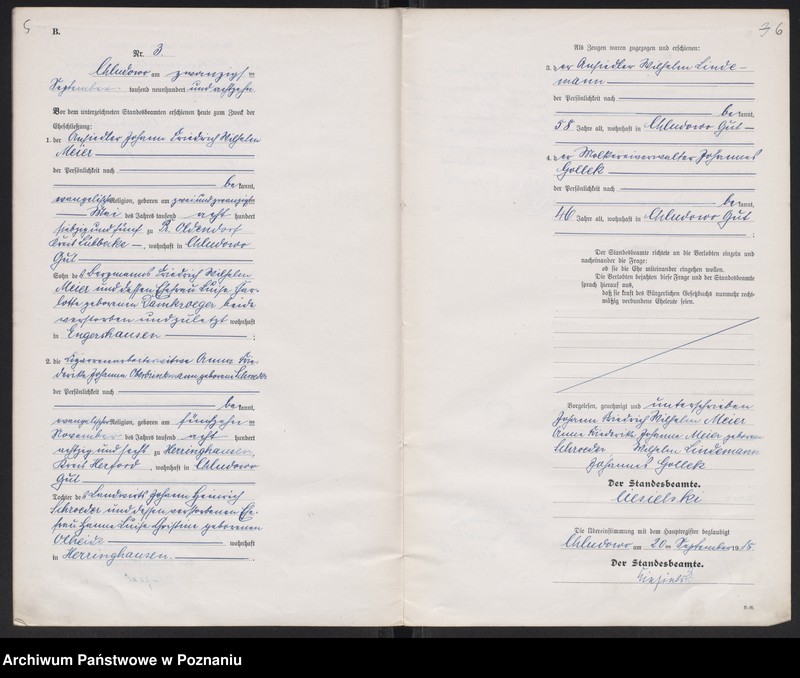 5
B.
Nr. 3.
Chludowo am zwanzigsten
September tausend neunhundert und achtzehn.
Vor dem unterzeichneten Standesbeamten erschienen heute zum Zweck der
Eheschließung:
1. der Ansiedler Johann Friedrich Wilhelm
Meier
der Persönlichkeit nach
bekannt,
evangelischer Religion, geboren am zweiundzwanzigsten
Mai des Jahres tausend acht hundert
siebzig und fünf zu R. Oldendorf
Kreis Lübbecke, wohnhaft in Chludowo
Gut
Sohn des Bergmanns Friedrich Wilhelm
Meier und dessen Ehefrau Luise Char-
lotte geborenen beide
verstorben und zuletzt wohnhaft
in Engershausen ;
2. die Anna Frie-
derike Johanna geborene Schroeder
der Persönlichkeit nach
bekannt,
evangelischer Religion, geboren am fünfzehnten
November des Jahres tausend acht hundert
achtzig und sechs zu Herringhausen,
Kreis Herford, wohnhaft in Chludowo
Gut
Tochter des Landwirts Johann Heinrich
Schroeder und dessen verstorbenen Ehe-
frau Hanne Luise Christine geborenen
wohnhaft
in Herringhausen.
36
Als Zeugen waren zugezogen und erschienen:
3. der Ansiedler Wilhelm Linde-
mann
der Persönlichkeit nach
bekannt,
58 Jahre alt, wohnhaft in Chludowo Gut
4. der Molkereiverwalter Johannes
Gollek
der Persönlichkeit nach
bekannt,
46 Jahre alt, wohnhaft in Chludowo Gut
;
Der Standesbeamte richtete an die Verlobten einzeln und
nacheinander die Frage:
ob sie die Ehe miteinander eingehen wollen.
Die Verlobten bejahten diese Frage und der Standesbeamte
sprach hierauf aus,
daß sie kraft des Bürgerlichen Gesetzbuchs nunmehr recht-
mäßig verbundene Eheleute seien.
Vorgelesen, genehmigt und unterschrieben
Johann Friedrich Wilhelm Meier
Anna Friederike Johanne Meier geborene
Schroeder Wilhelm Lindemann
Johannes Gollek
Der Standesbeamte.
Ciesielski
Die Übereinstimmung mit dem Hauptregister beglaubigt
Chludowo am 20ten September 19
Der Standesbeamte.
Archiwum Państwowe w Poznaniu